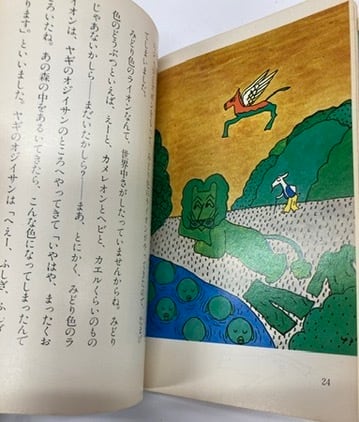 てしまいました。
みどり色のライオンなんて、世界中さがしたっていませんからね。みどり
色のどうぶつといえば、えーと、カメレオンとヘビと、カエルくらいのもの
じゃあないかしら――まだいたかしら？――まあ、とにかく、みどり色のラ
イオンは、ヤギのオジイサンのところへやってきて「いやはや、まったくお
ろいたね。あの森の中をあるいてきたら、こんな色になってしまったんで
ります」といいました。ヤギのオジイサンは、「へえー、ふしぎ、ふしぎ
24